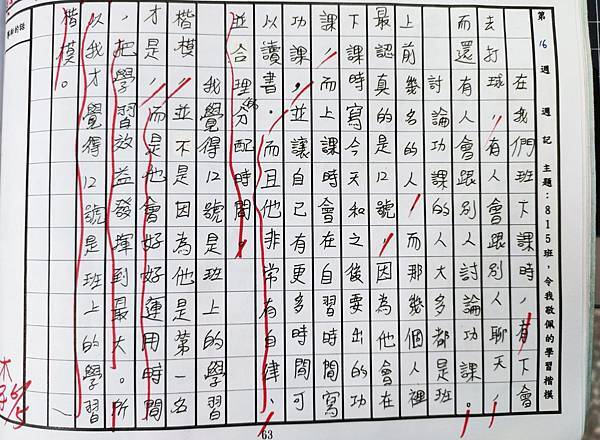 第16週 週記 主題:815班,令我敬佩的學習楷模
在我們班下課時,有下會
去打球,有人會跟別人聊天,
而還有人會跟別人討論功課。
討論功課的人大多都是班
上前幾名的人,而那幾個人裡
最認真的是12號,因為他會在
下課時寫今天和之後要出的功
課,而上課時會在自習時間寫
功課,並讓自己有更多時間可
以讀書,而且他非常有自律、
並合理的分配時間。
我覺得12號是班上的學習
楷模,並不是因為他是第一名
才是,而是他會好好運用時間
,把學習效益發揮到最大。所
以我才覺得12號是班上的學習
楷模。
63